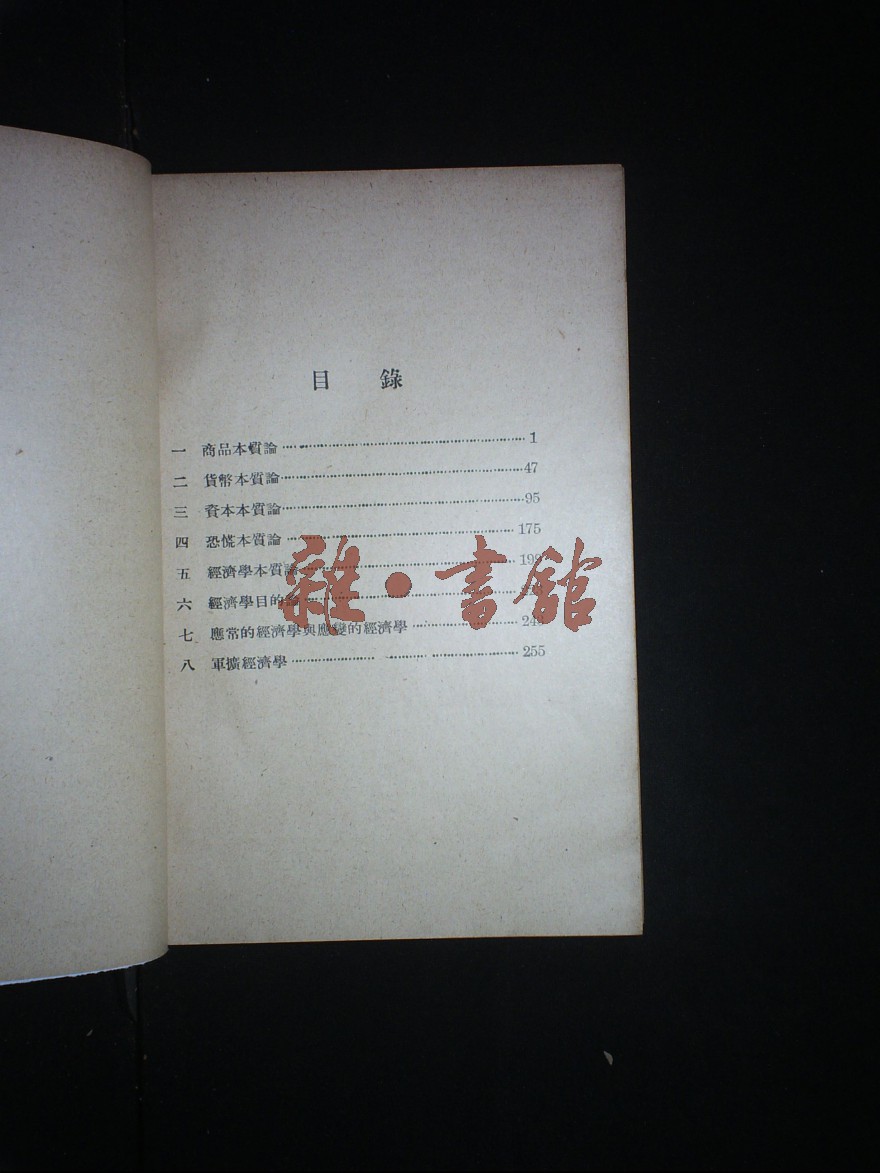 目錄
一 商品本質論 1
二 貨幣本質論 47
三 資本本質論 95
四 恐慌本質論 175
五 經濟學本質論
六 經濟學目的論
七 應常的經濟學與應變的經濟學
八 軍擴經濟學 255
雜·書館